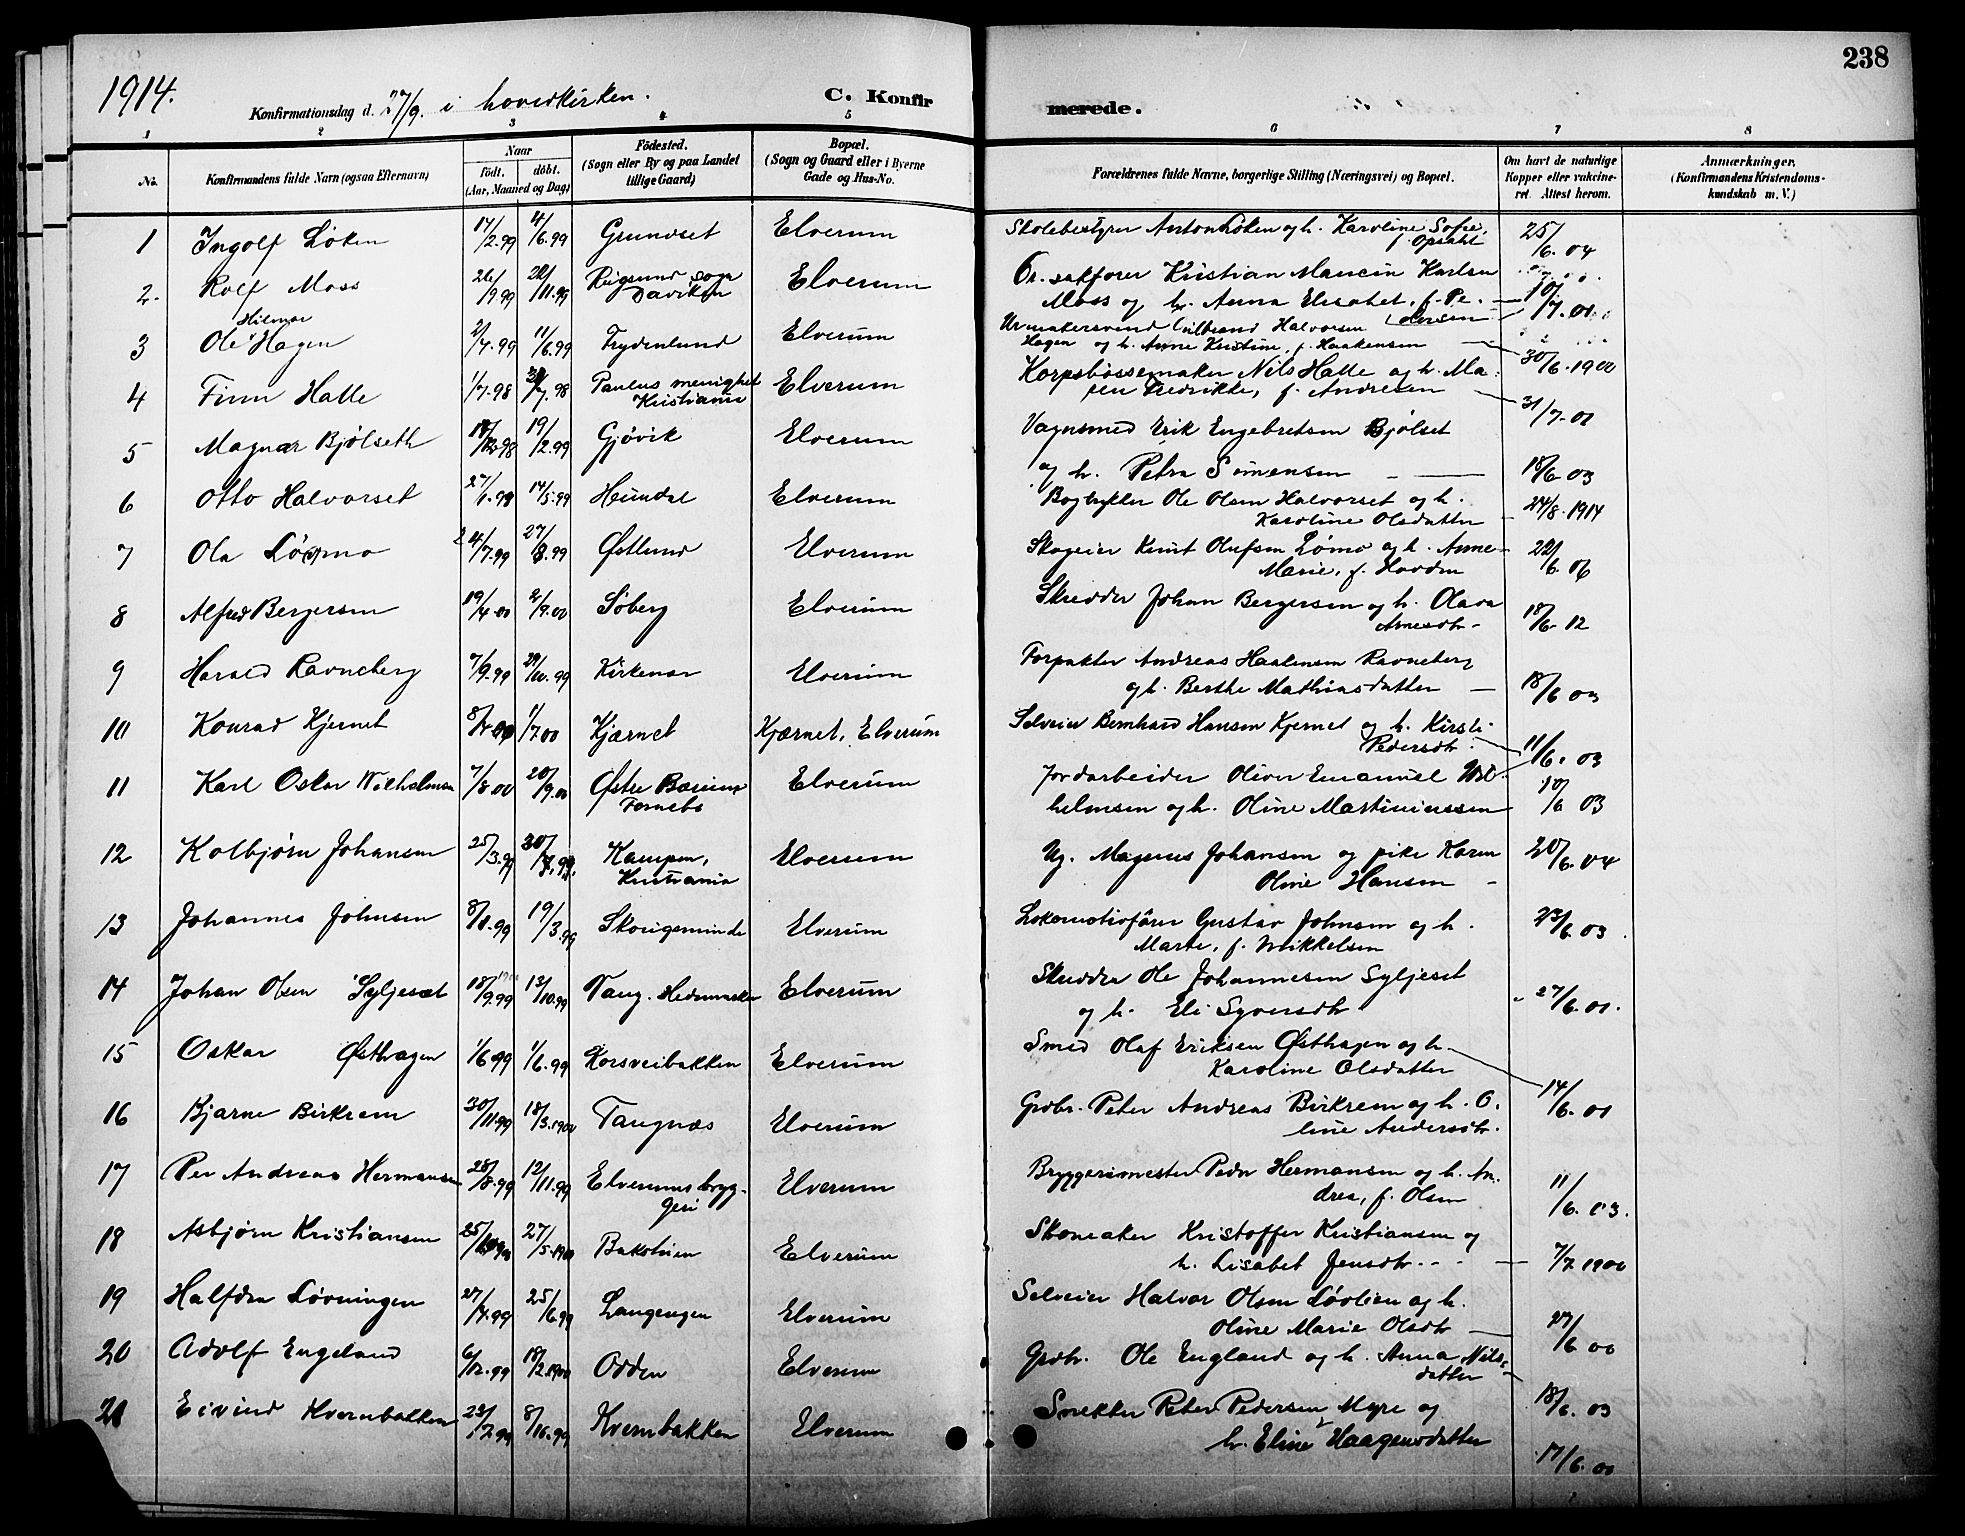 238
1914.
Konfirmationsdag d. 27/9. i hovedkirken.
C. Konfirmerede.
1 2 3 4 5 6 7 8
No. Konfirmandens fulde Navn (ogsaa Efternavn) Naar födt. döbt. (Aar, Maaned og Dag) Födested. (Sogn eller By og paa Landet tillige Gaard) Bopæl. (Sogn og Gaard eller i Byerne Gade og Hus-No. Forældrenes fulde Navne, borgerlige Stilling (Næringsvei) og Bopæl. Om havt de naturlige Kopper eller vakcineret. Attest herom. Anmærkninger. (Konfirmandens Kristendomskundskab m. V.)
1 Ingolf Løken 17/2.99 4/6.99 Grundset Elverum Skolebestyrer Anton Løken og h. Karoline Sofie, f. Opsahl 25/6.04
2. Rolf Moss 26/9 99 Rugsund sogn Daviken Elverum Or. sakfører Kristian Karlsen
Moss og h. Anna Elisabet, f. Pedersen 10/7.01
3 Ole Hilmar Hagen 2/4.99 11/6.99 Frydenlund Elverum Urmakersvend Gulbrand Halvorsen
Hagen og h. Anne Kristine, f. Haakensen 30/6.1900
4 Finn Halle 1/7.98 Paulus menighet Kristiania Elverum Korpsbøssemaker Nils Halle og h. Maren Fredrikke, f. Andresen 31/7.01
5 Magnar Bjølseth 19/2.99 Gjøvik Elverum Vognsmed Erik Engebretsen Bjølset
og h. Petra Simensen 18/6 03
6 Otto Halvorset 14/5.99 Heimdal Elverum Bogtrykker Ole Olsen Halvorset og h.
Karoline Olsdatter 24/8.1914
7 Ola Lømo 24/7.99 27/8.99 Østlund Elverum Skogeier Knut Olufsen Lømo og h. Anne
Marie, f. Hovden 22/6.06
8 Alfred Bergersen 19/4.00 2/9.00 Søberg Elverum Skredder Johan Bergersen og h. Olava
Arnesdtr. 18/6 12
9 Harald Ravneberg 7/9.99 29/10.99 Kirkenær Elverum Forpakter Andreas Haakensen Ravneberg
og h. Berthe Mathiasdatter 18/6 03
10 Konrad Kjernet 1/7.00 Kjærnet Kjærnet, Elverum Selveier Bernhard Hansen Kjernet og h. Kirsti
Pedersdtr. 11/6.03
11 Karl Oskar Wilhelmsen 7/8.00 20/9.00 Østre Bærum Fornebo Elverum Jordarbeider Oliver Emanuel Wilhelmsen og h. Oline Martiniussen 10/6 03
12 Kolbjørn Johansen 25/3.99 30/7.99. Kampen, Kristiania Elverum Ug. Magnus Johansen og pike Karen
Oline Hansen 20/6.04
13 Johannes Johnsen 8/1.99 19/3.99 Skougsminde Elverum Lokomotivfører Gustav Johnsen og h.
Marte, f. Mikkelsen 23/6.03
14 Johan Olsen Syljeset 18/9.99 13/10.99 Vang. Hedemarken Elverum Skredder Ole Johannesen Syljeset
og h. Eli Syversdtr 27/6.01.
15 Oskar Østhagen 1/6.99 Korsveibakken Elverum Smed Olaf Eriksen Østhagen og h.
Karoline Olsdatter 14/6.01
16 Bjarne Birkrem 30/11.99 18/3.1900 Tangnæs Elverum Grdbr. Peter Andreas Birkrem og h. Oline Andersdtr.
17 Per Andreas Hermansen 28/8.99 12/11.99 Elverums bryggeri Elverum Bryggerimester Peder Hermansen og h. Andrea, f. Olsen 11/6.03.
18 Asbjørn Kristiansen 27/5.1900 Bakstuen Elverum Skomaker Kristoffer Kristiansen og
h. Lisabet Jensdtr. 7/7.1900
19 Halfdan Løvningen 27/4.99 25/6.99 Langengen Elverum Selveier Halvor Olsen Løvlien og h.
Oline Marie Olsdtr 27/6 00
20 Adolf Engeland 6/12.99 18/2.1900 Odden Elverum Grdbr. Ole England og h. Anna Nilsdatter 18/6.03
21 Eivind Kvernbakken 23/2.99 Kvernbakken Elverum Snekker Peter Pedersen Myre og
h. Eline Haagensdatter 17/6.00